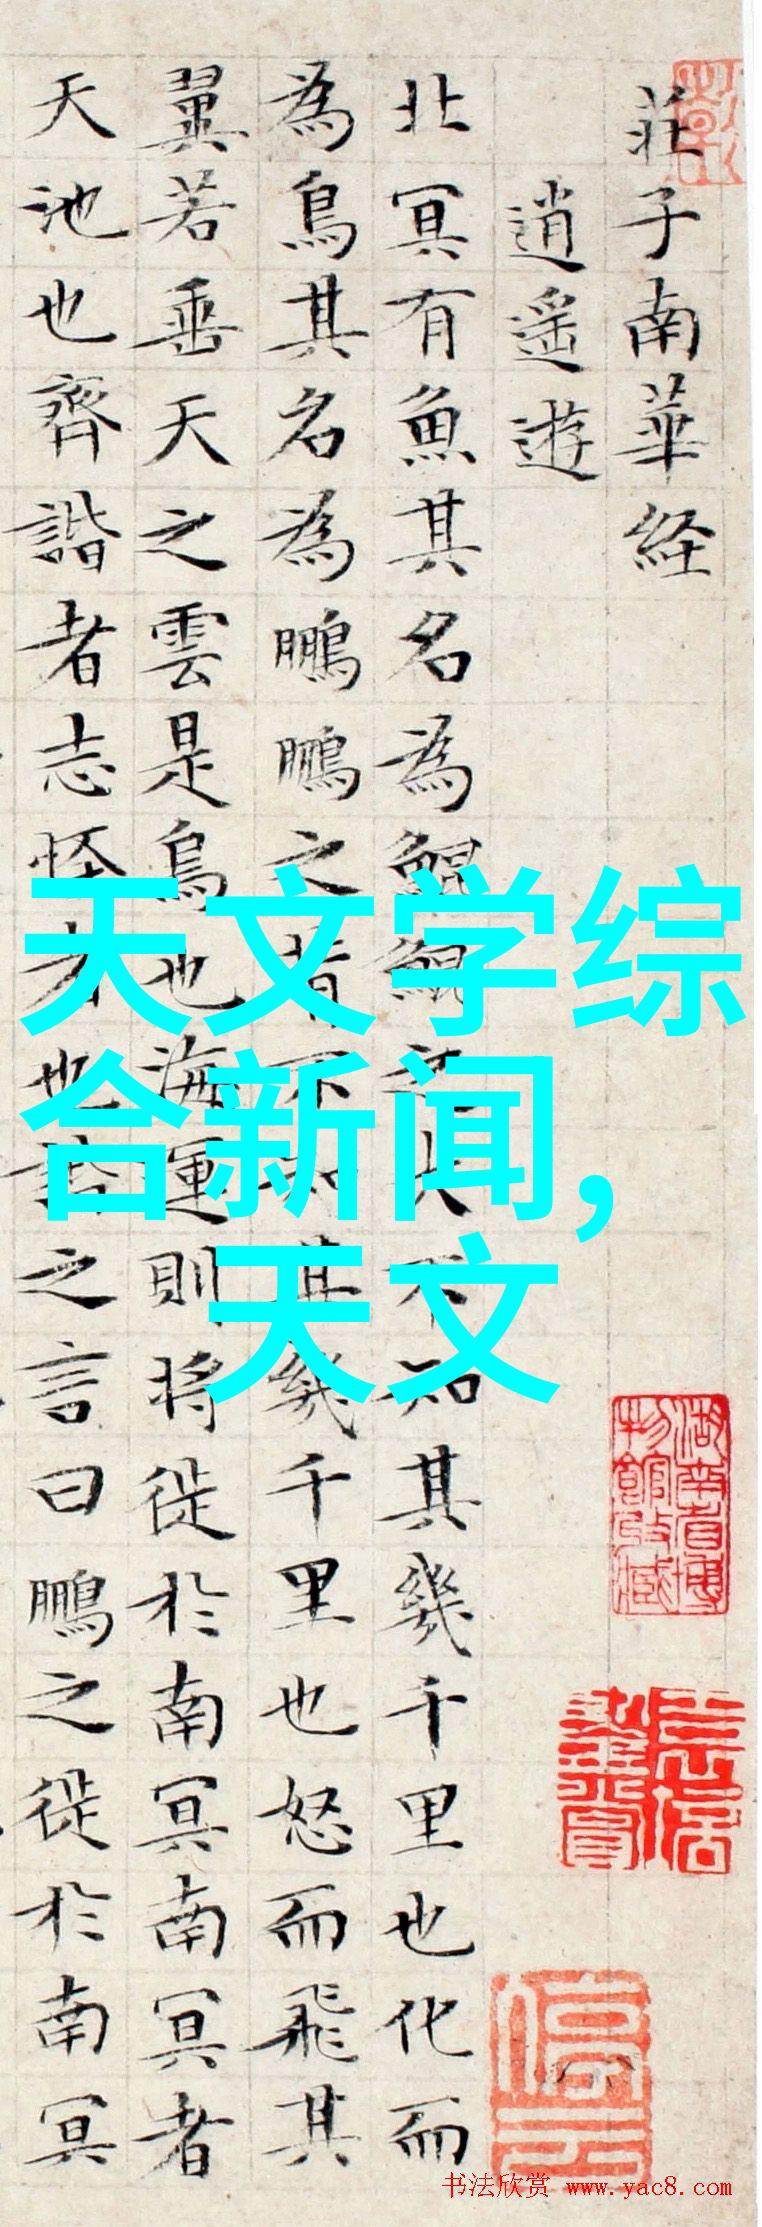 莊子南華経
逍遥遊
北冥有魚其名為鯤鯤之大不知其幾千里也化而
為鳥其名為鵬鵬之背不知其幾千里也怒而飛其
翼若垂天之雲是鳥也海運則将徙於南冥南冥者
天池也齊諧者志怪者也諧之言曰鵬之徙於南冥
天文学综
合新闻,
天文
湖南省博
物館收藏
停云
书法欣赏 www.yac8.com